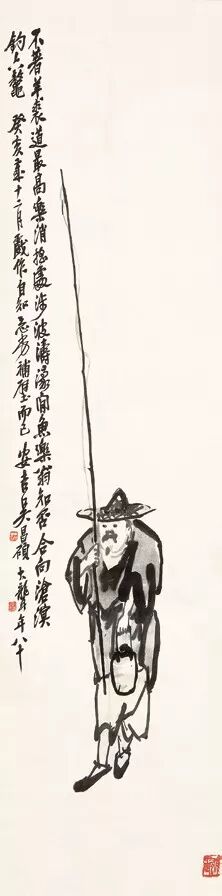 不著羊裘道最高樂消搖處涉波濤濠間魚樂翁知否合向滄溟
釣六鼇 癸亥歲十二月戲作自知惡劣補壁而已安吉吳昌碩大聾年八十